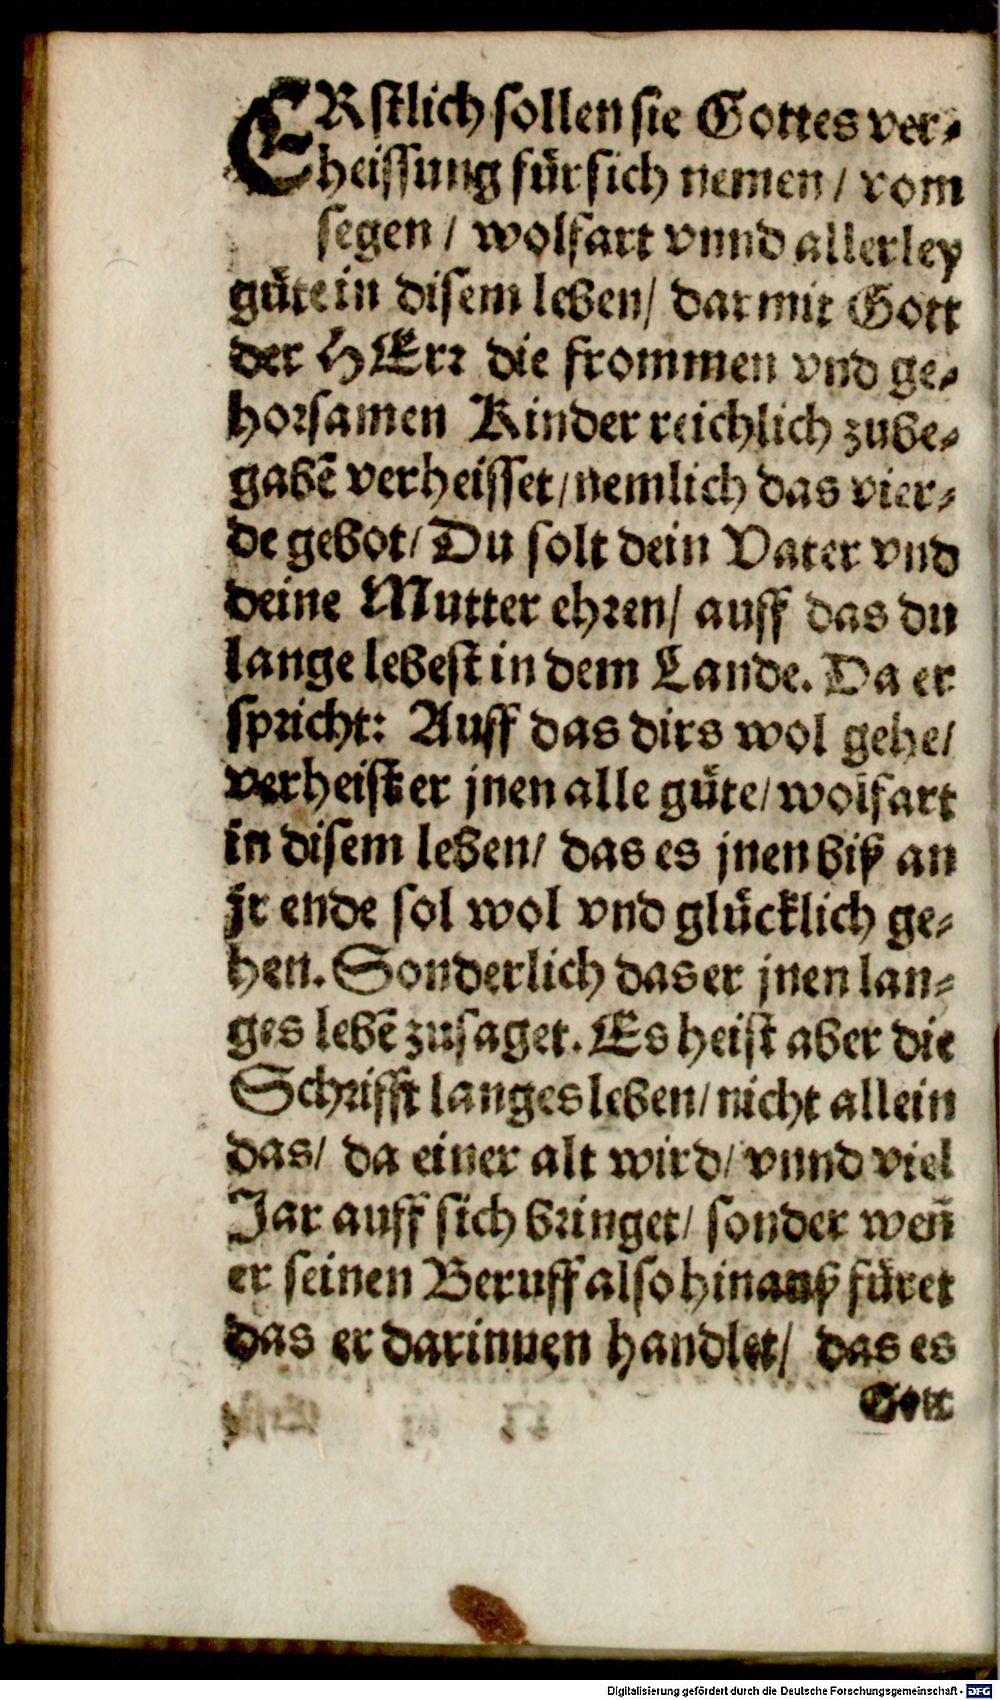 ERstlich sollen sie Gottes ver-
heissung für sich nemen / vom
segen / wolfart vnnd allerley
güte in disem leben / dar mit Gott
der HErr die frommen vnd ge-
horsamen Kinder reichlich zube-
gabē verheisset / nemlich das vier-
de gebot / Du solt dein Vater vnd
deine Mutter ehren / auff das du
lange lebest in dem Lande. Da er
spricht: Auff das dirs wol gehe /
verheist er jnen alle güte / wolfart
in disem leben / das es jnen biß an
jr ende sol wol vnd glücklich ge-
hen. Sonderlich das er jnen lan-
ges lebē zusaget. Es heist aber die
Schrifft langes leben / nicht allein
das / da einer alt wird / vnnd viel
Jar auff sich bringet / sonder weñ
er seinen Beruff also hinauß füret
das er darinnen handlet / das es
Gott
Digitalisierung gefördert durch die Deutsche Forschungsgemeinschaft - DFG